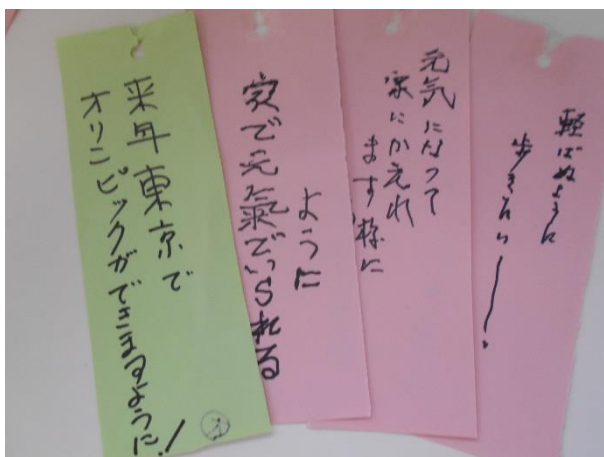 来年東京で
オリンピックができますように!
家で元氣でいられる
ように
元気になって
家にかえれ
ます様に
ように
歩きたい